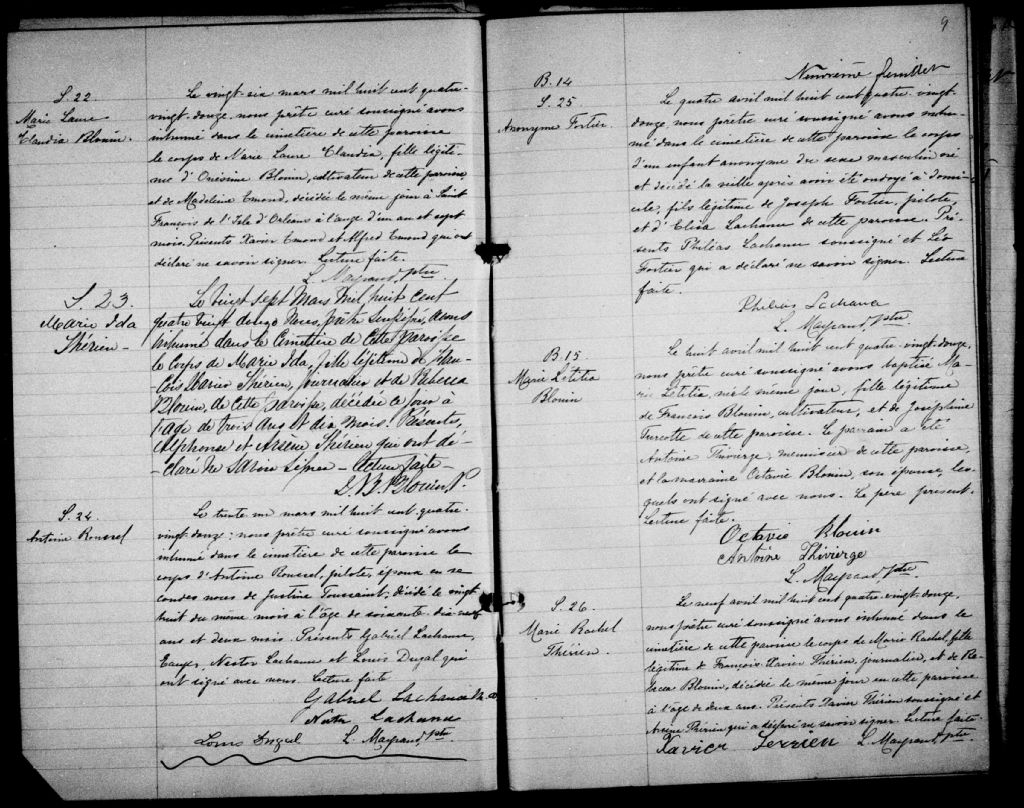 S. 22
Marie Laure
Claudia Blouin.
Le vingt-six mars mil huit cent quatre-
vingt-douze, nous prêtre curé soussigné avons
inhumé dans le cimetière de cette paroisse
le corps de Marie Laure Claudia, fille légiti-
me d'Onésime Blouin, cultivateur de cette paroisse
et de Madeleine Emond, décédée le même jour à Saint
François de l'Isle d'Orléans à l'age d'un an et sept
mois. Présents Xavier Emond et Alfred Emond qui ont
déclaré ne savoir signer. Lecture faite.
L. Mayrand, ptre
S. 23
Marie Ida
Thérien -
Le vingt sept Mars mil huit cent
quatre vingt douze Nous, prêtre soussigné, avons
inhumé dans le Cimetière de cette paroisse
le Corps de Marie Ida, fille légitime de Fran-
çois Xavier Thérien, journalier et de Rebecca
Blouin, de cette paroisse, décédée ce jour à
l'age de trois ans et dix mois. Présents,
Alphonse et Arsène Thérien qui ont dé-
- claré ne savoir signer - Lecture faite -
Blouin P.
S. 24
Antoine Roussel
Le trente un mars mil huit cent quatre-
vingt-douze; nous prêtre curé soussigné avons
inhumé dans le cimetière de cette paroisse le
corps d'Antoine Roussel, pilote, époux en se
condes noces de Justine Toussaint, décédé le vingt
huit du même mois à l'âge de soixante dix neuf
ans et deux mois. Présents Gabriel Lachance,
Nestor Lachance et Louis Dugal qui
ont signé avec nous. Lecture faite
Gabriel Lachance
Nestor Lachance
Louis Dugal L. Mayrand, ptre
9
Neuvième feuillet
B. 14
S. 25
Anonyme Fortier
Le quatre avril mil huit cent quatre-vingt-
douze, nous prêtre curé soussigné avons inhu-
mé dans le cimetière de cette paroisse le corps
d'un enfant anonyme du sexe masculin né
et décédé la veille après avoir été ondoyé à domi-
cile, fils légitime de Joseph Fortier, pilote,
et d'Eliza Lachance de cette paroisse. Pré-
sents Philéas Lachance soussigné et Léo
Fortier qui a déclaré ne savoir signer. Lecture
faite.
Philéas Lachance
L. Mayrand, ptre
B. 15
Marie Létitia
Blouin
Le huit avril mil huit cent quatre-vingt-douze,
nous prêtre curé soussigné avons baptisé Ma-
rie Létitia, née le même jour, fille légitime
de François Blouin, cultivateur, et de Joséphine
Turcotte de cette paroisse. Le parrain a été
Antoine Thivierge, menuisier de cette paroisse,
et la marraine Octavie Blouin, son épouse, les-
quels ont signé avec nous. Le père présent.
Lecture faite.
Octavie Blouin
Antoine Thivierge
L. Mayrand, ptre
S. 26.
Marie Rachel
Thérien.
Le neuf avril mil huit cent quatre-vingt-douze,
nous prêtre curé soussigné avons inhumé dans le
cimetière de cette paroisse le corps de Marie Rachel, fille
légitime de François Xavier Thérien, journalier, et de Re-
becca Blouin, décédée le même jour en cette paroisse
à l'âge de deux ans. Présents Xavier Thérien soussigné et
Arsène Thérien qui a déclaré ne savoir signer. Lecture faite.
Xavier Terrien L. Mayrand, ptre